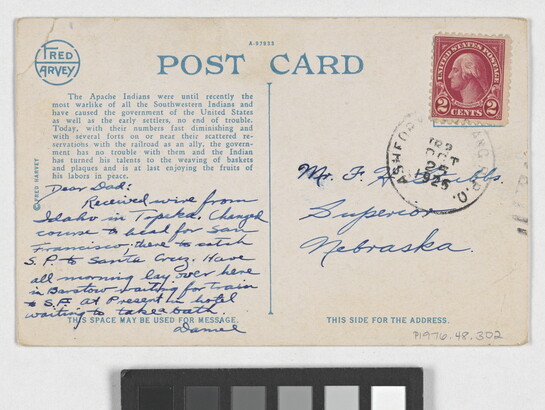 FRED
HARVEY
A-97933
POST CARD
The Apache Indians were until recently the
most warlike of all the Southwestern Indians and
have caused the government of the United States
as well as the early settlers, no end of trouble.
Today, with their numbers fast diminishing and
with several forts on or near their scattered re-
servations with the railroad as an ally, the govern-
ment has no trouble with them and the Indian
has turned his talents to the weaving of baskets
and plaques and is at last enjoying the fruits of
his labors in peace.
© FRED HARVEY
Dear Dad:
Received wire from
Idaho in Topeka. Changed
course to head for San
Francisco, there to catch
S.P. to Santa Cruz. Have
all morning lay over here
in Barstow waiting for train
to S.F. At Present in hotel
waiting to take a bath.
Daniel
THIS SPACE MAY BE USED FOR MESSAGE.
UNITED STATES POSTAGE
2 CENTS 2
ASHFORK
OCT
25
1925
R.P.O.
Mr. F. H. Stubbs.
Superior
Nebraska.
THIS SIDE FOR THE ADDRESS.
P1976.48.302